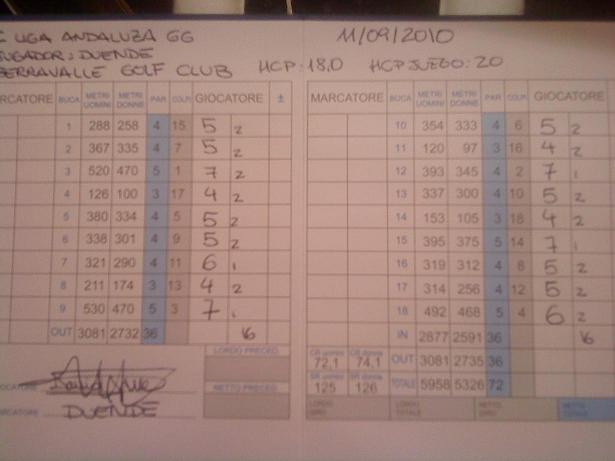 LIGA ANDALUZA GG
11/09/2010
JUGADOR: DUENDE
SERRAVALLE GOLF CLUB HCP: 18,0 HCP JUEGO: 20
MARCATORE BUCA METRI UOMINI METRI DONNE PAR COLPI GIOCATORE ±
1 288 258 4 15 5 2
2 367 335 4 7 5 2
3 520 470 5 1 7 2
4 126 100 3 17 4 2
5 380 334 4 5 5 2
6 338 301 4 9 5 2
7 321 290 4 11 6 1
8 211 174 3 13 4 2
9 530 470 5 3 7 1
OUT 3081 2732 36 16
LORDO PRECED
NETTO PRECED
GIOCATORE
MARCATORE DUENDE
MARCATORE BUCA METRI UOMINI METRI DONNE PAR COLPI GIOCATORE
10 354 333 4 6 5 2
11 120 97 3 16 4 2
12 393 345 4 2 7 1
13 337 300 4 10 5 2
14 153 105 3 18 4 2
15 395 375 5 14 7 1
16 319 312 4 8 5 2
17 314 256 4 12 5 2
18 492 468 5 4 6 2
IN 2877 2591 36 16
CR uomini 72,1 CR donne 74,1 OUT 3081 2735 36
SR uomini 125 SR donne 126 TOTALE 5958 5326 72
LORDO GIRO LORDO TOTALE NETTO GIRO NETTO TOTALE